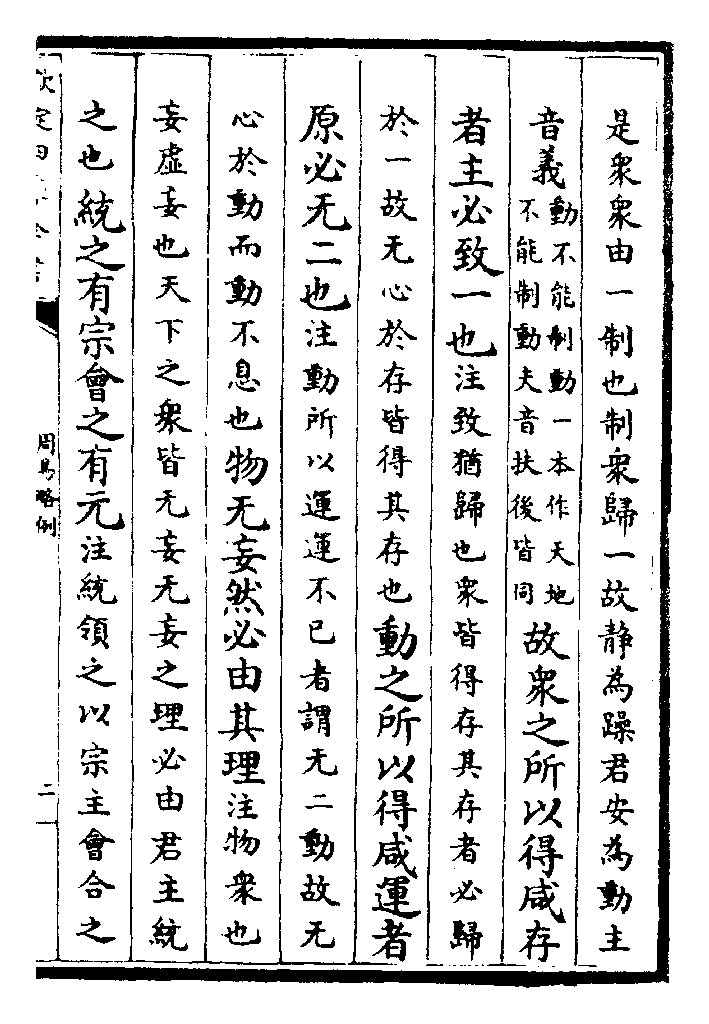 是衆衆由一制也制衆歸一故静為躁君安為動主
音義動不能制動一本作天地不能制動夫音扶後皆同故衆之所以得咸存
者主必致一也注致猶歸也衆皆得存其存者必歸
於一故无心於存皆得其存也動之所以得咸運者
原必无二也注動所以運運不已者謂无二動故无
心於動而動不息也物无妄然必由其理注物衆也
妄虛妄也天下之衆皆无妄无妄之理必由君主統
之也統之有宗會之有元注統領之以宗主會合之
周易略例
二